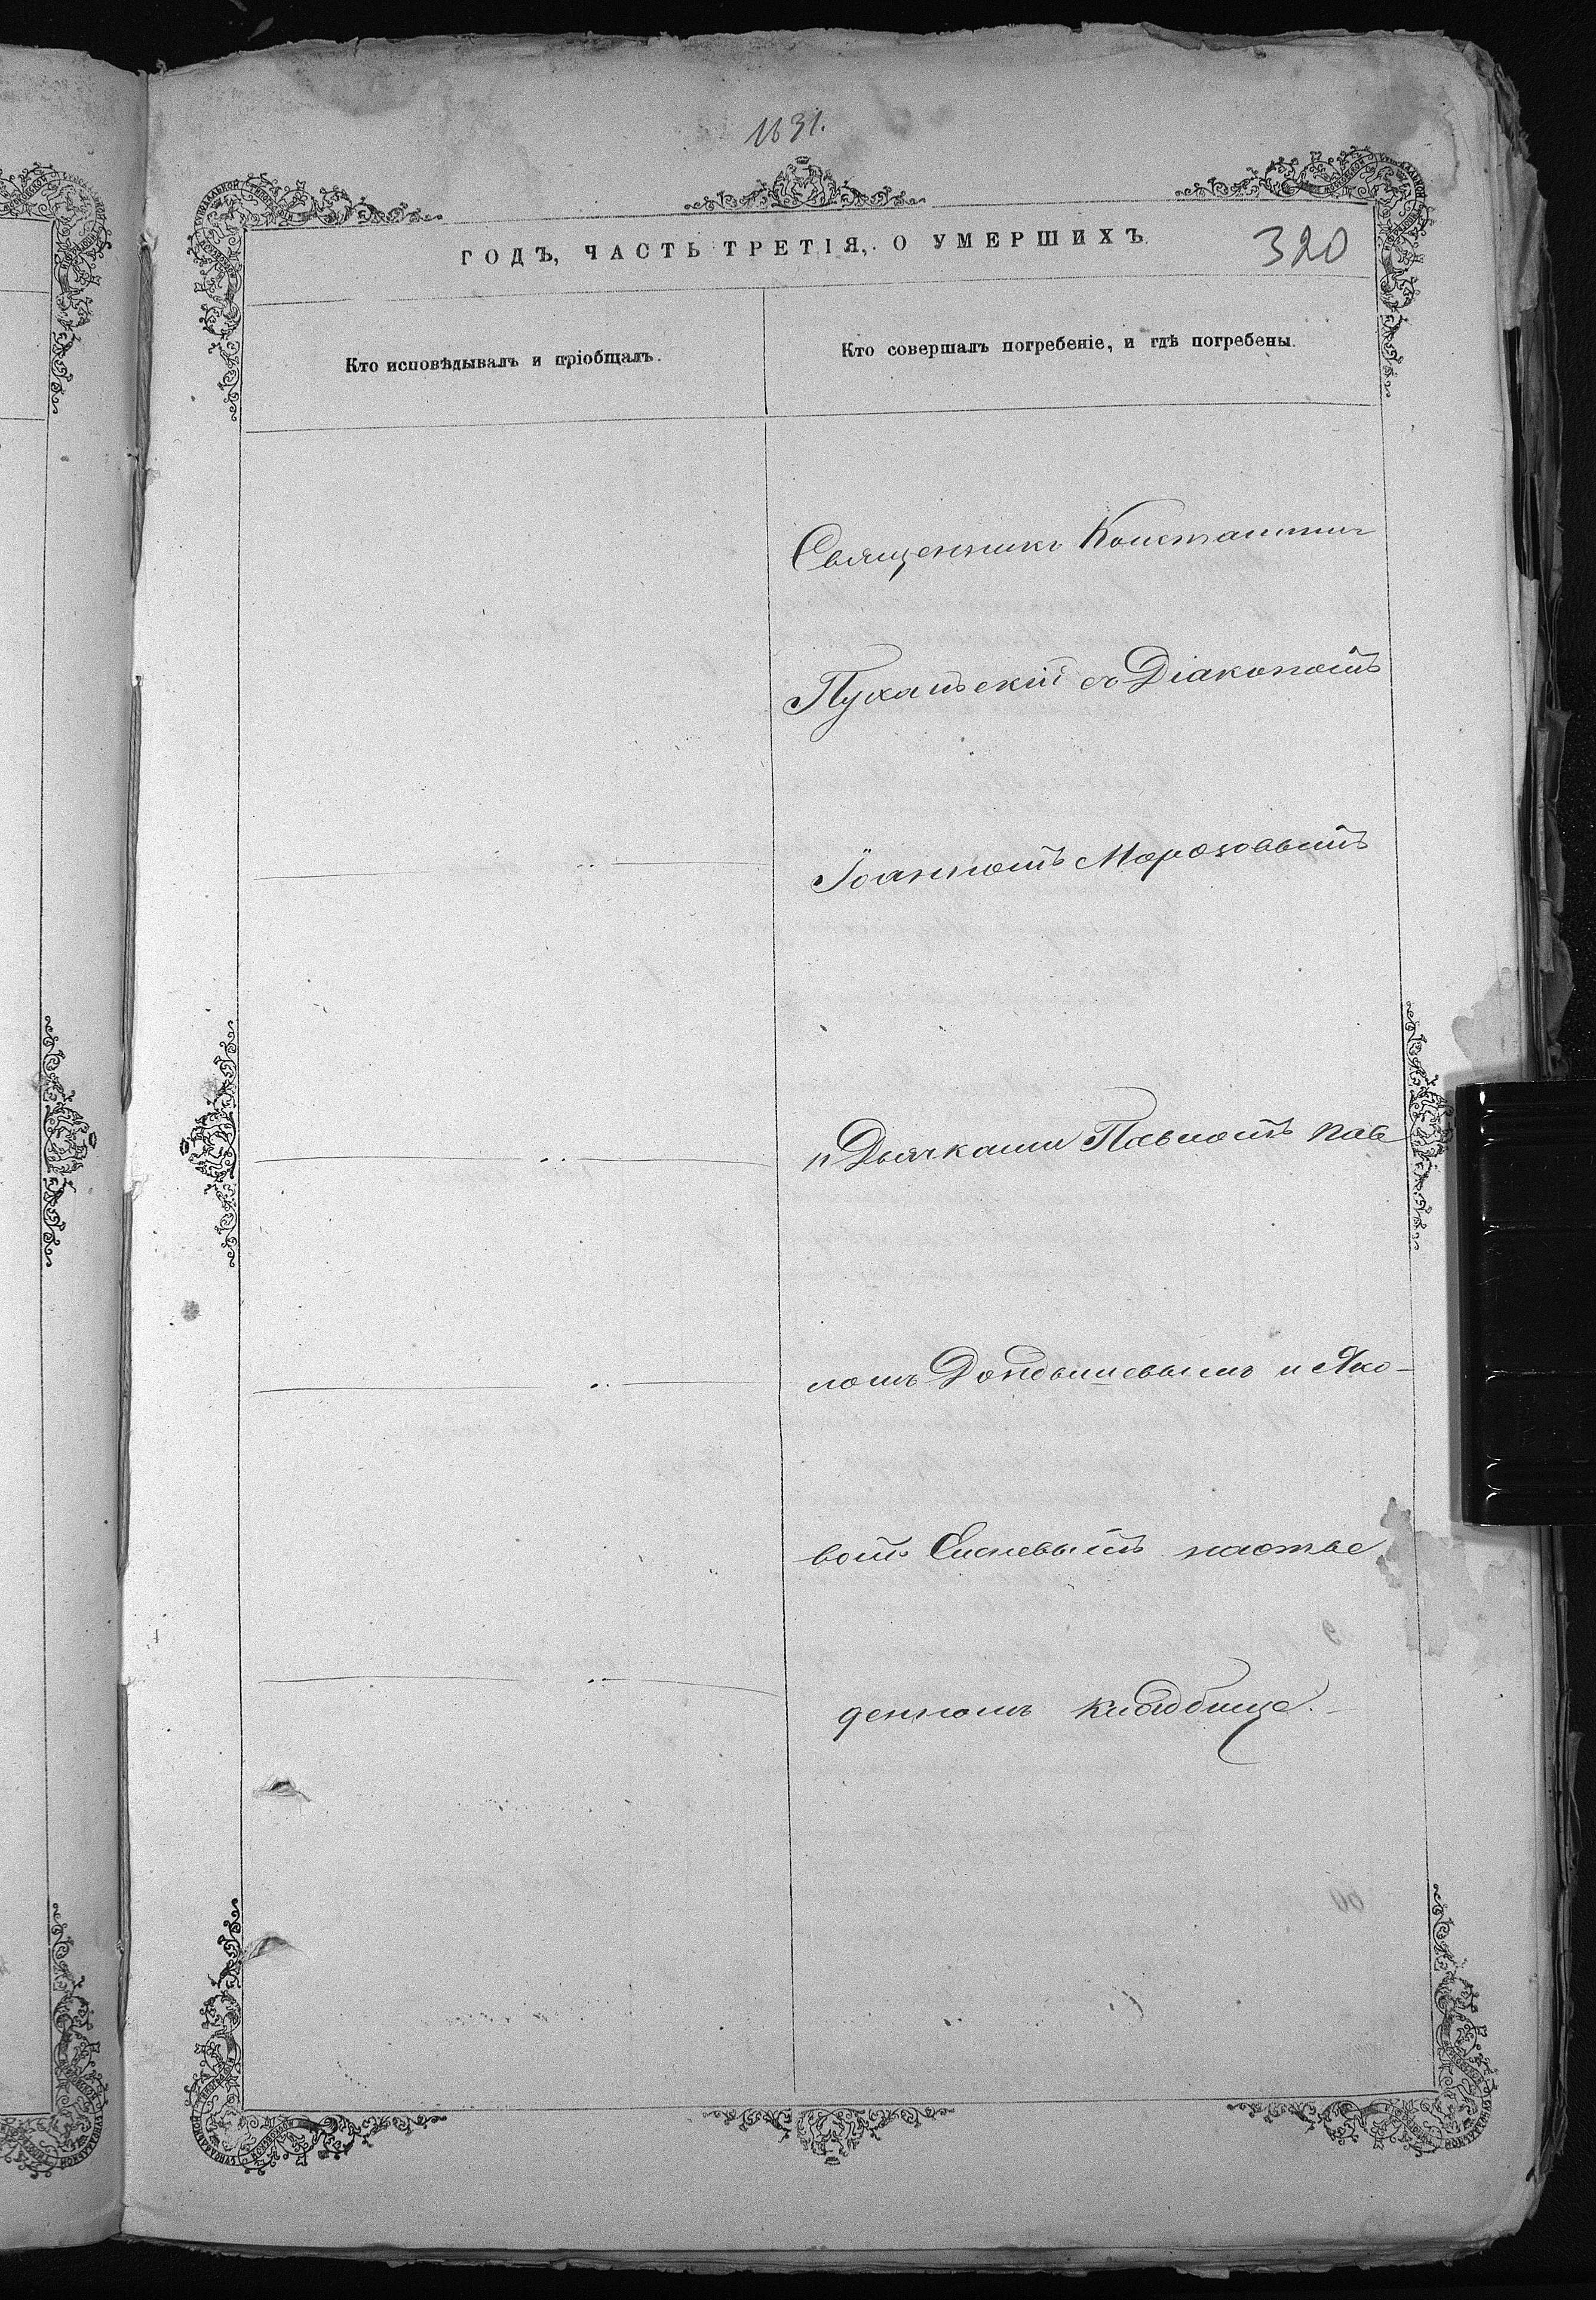 1631.
ГОДЪ, ЧАСТЬ ТРЕТІЯ, О УМЕРШИХЪ
320
Кто исповѣдывалъ и пріобщалъ.
Кто совершалъ погребеніе, и гдѣ погребены.
Священникъ Константинъ
Пухальскій съ Діакономъ
Іоанномъ Морозовымъ
и Дьячками Павломъ Пав
ломъ и Яко-
вомъ
денномъ кладбище.